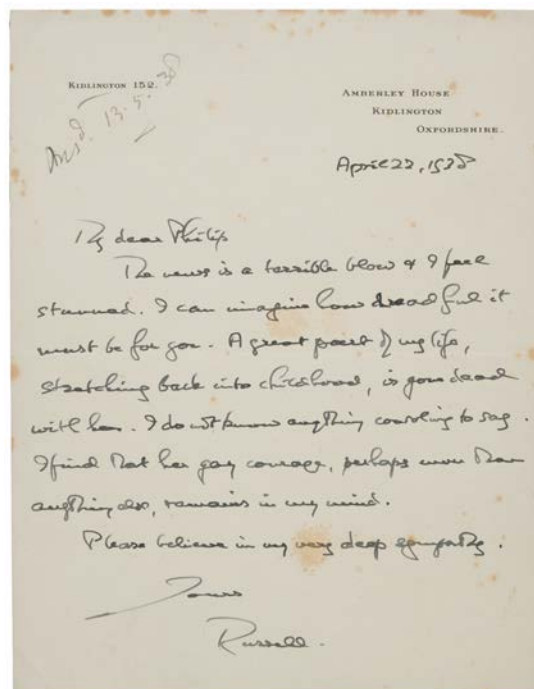 KIDLINGTON 152.
Ansd. 13.5.38
AMBERLEY HOUSE
KIDLINGTON
OXFORDSHIRE.
April 22, 1938
My dear Philip
The news is a terrible blow & I feel
stunned. I can imagine how dreadful it
must be for you. A great part of my life,
stretching back into childhood, is gone dead
with her. I do not know anything consoling to say.
I find that her gay courage, perhaps more than
anything else, remains in my mind.
Please believe in my very deep sympathy.
Yours
Russell.